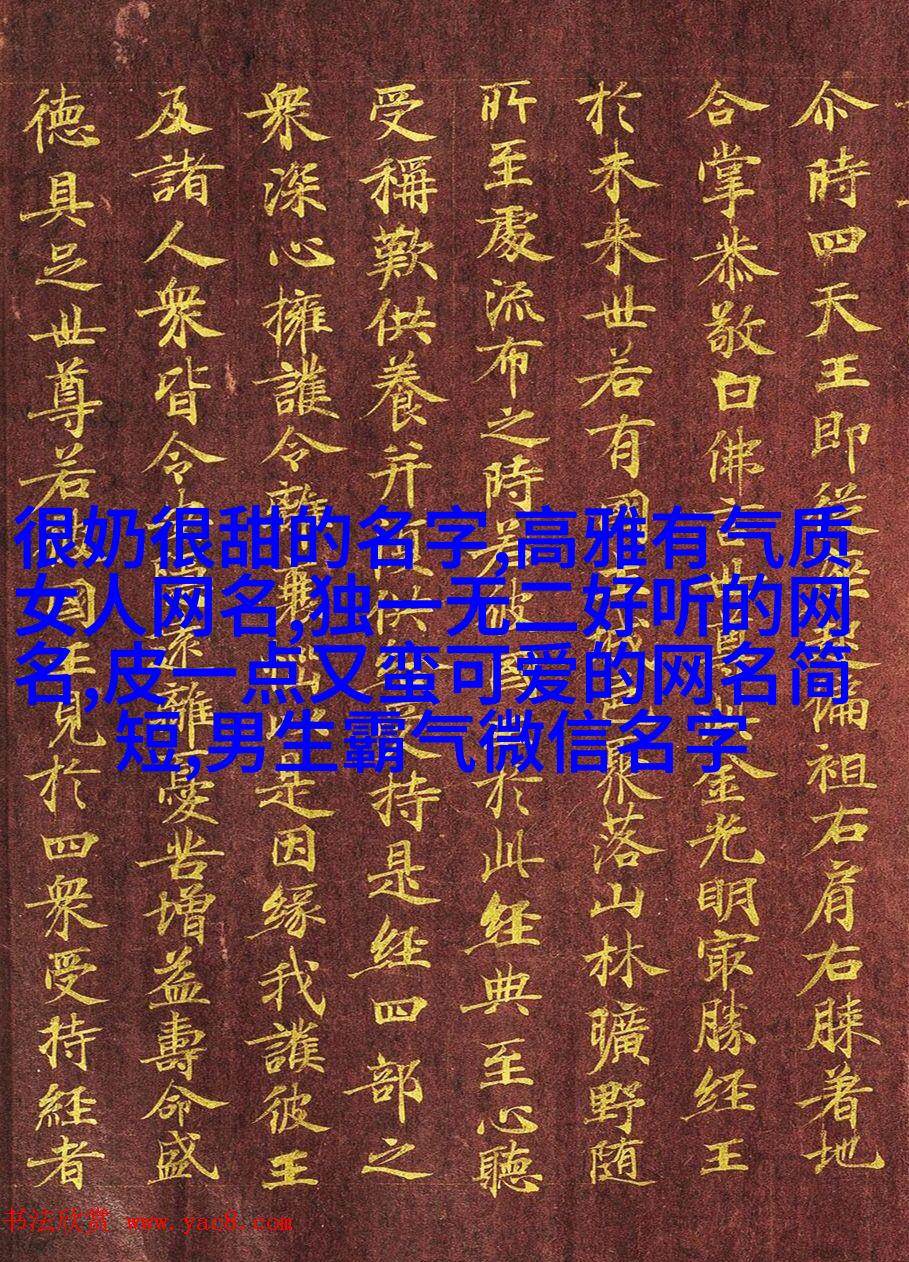 尒時四天王即從偏袒右肩右膝著地
合掌恭敬白佛言世尊金光明㝡勝經王
於未来世若有國聚落山林曠野随
所至處流布之時若彼國於此経典至心聽
受稱歎供養并供持是経四部之
衆深心擁護令離是因緣我護彼王
及諸人衆皆令離憂苦增益壽命威
德具足世尊若國王見於四衆受持経者
很奶很甜的名字,高雅有气质
女人网名,独一无二好听的网
名,皮一点又蛮可爱的网名简
短,男生霸气微信名字
书法欣赏 www.yac8.com